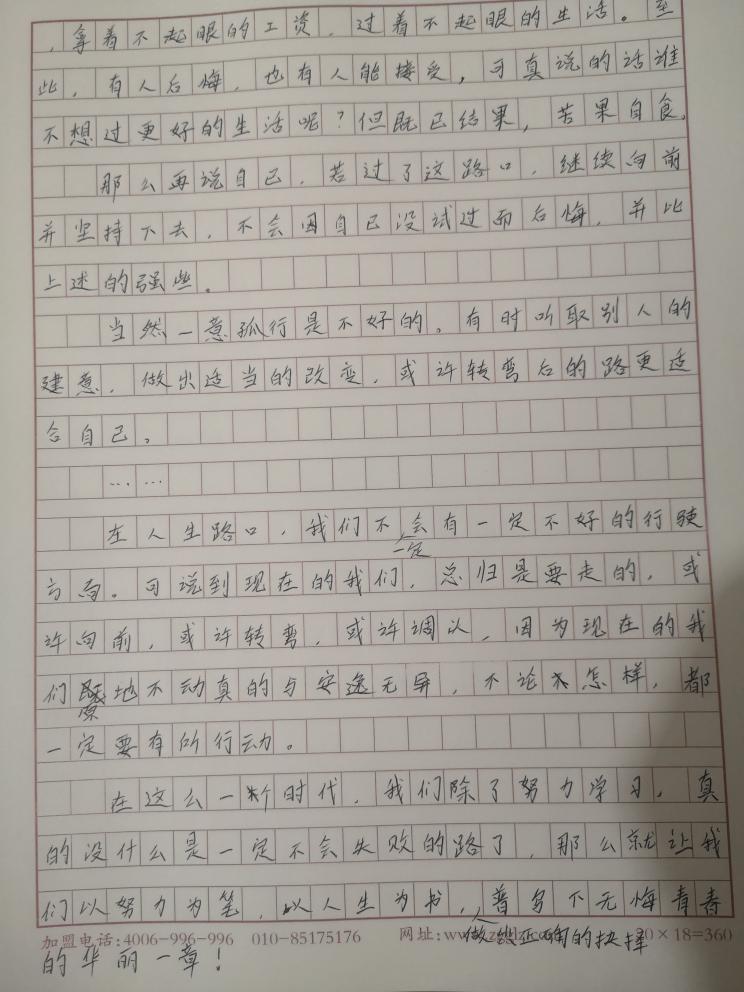 ，拿着不起眼的工资，过着不起眼的生活。至
此，有人后悔，也有人能接受，可真说的话谁
不想过更好的生活呢？但既已结果，苦果自食。
那么再说自己，若过了这路口，继续向前
并坚持下去，不会因自己没试过而后悔，并比
上述的强些。
当然一意孤行是不好的。有时听取别人的
建意，做出适当的改变，或许转弯后的路更适
合自己。
……
在人生路口，我们不会有一定不好的行驶
一定
方向。可说到现在的我们，总归是要走的，或
许向前，或许转弯，或许调以，因为现在的我
们 地不动真的与安逸无异，不论 怎样，都
原
一定要有所行动。
在这么一 个时代，我们除了努力学习，真
的没什么是一定不会失败的路了，那么就让我
们以努力为笔，以人生为书，谱写下无悔青春
做出正确的抉择
加盟电话:4006-996-996 010-85175176 网址:www. 20×18=360
的华丽一章！